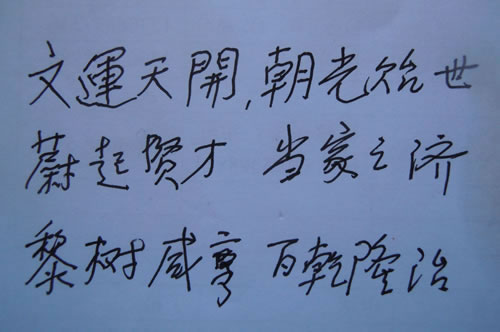 文運天開,朝光始世
蔚起賢才 当家之济
黎树咸亨 百乾隆治